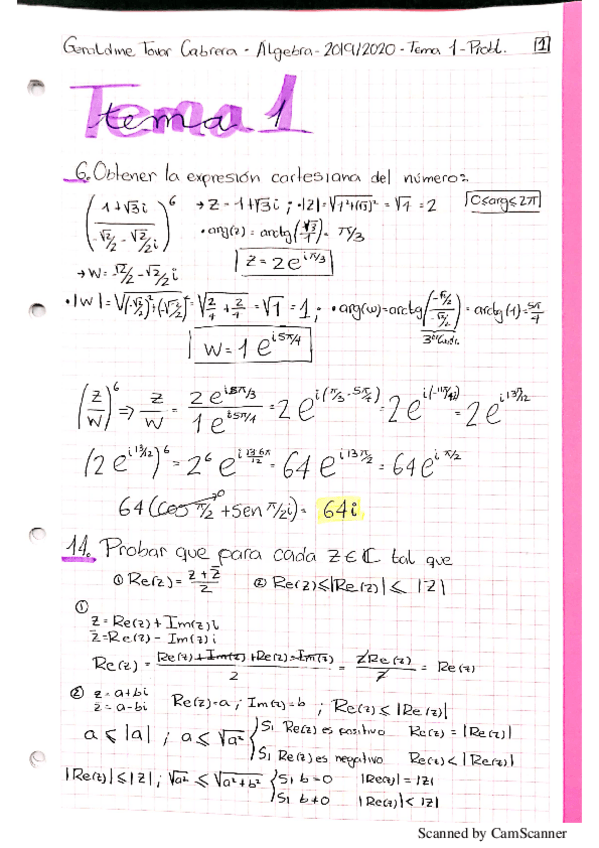 Geraldine Tovar Cabrera - Álgebra - 2019/2020 - Tema 1 - Probl. 1
Tema 1
6. Obtener la expresión cartesiana del número:
((1+√3i)/(-√2/2 - √2/2i))^6 → z = 1+√3i ; · |z| = √(1²+(√3)²) = √4 = 2 0≤arg≤2π
· arg(z) = arctg(√3/1) = π/3
z = 2e^(iπ/3)
→ W = -√2/2 - √2/2 i
· |W| = √((-√2/2)²+(-√2/2)²) = √(2/4 + 2/4) = √1 = 1 ; · arg(w) = arctg((-√2/2)/(-√2/2)) = arctg(1) = 5π/4
3º Cuadr.
W = 1 e^(i5π/4)
(z/w)^6 ⇒ z/w = 2e^(iπ/3)/1e^(i5π/4) = 2e^(i(π/3 - 5π/4)) = 2e^(i(-11π/12)) = 2e^(i13π/12)
(2e^(i13/12))^6 = 2^6 e^(i13·6π/12) = 64e^(i13π/2) = 64e^(iπ/2)
64 (cos π/2 + sen π/2 i) = 64i
14. Probar que para cada z∈ℂ tal que
① Re(z) = (z+z̄)/2 ② Re(z)≤|Re(z)| ≤ |z|
①
z = Re(z) + Im(z)i
z̄ = Re(z) - Im(z)i
Re(z) = (Re(z) + Im(z) + Re(z) - Im(z))/2 = 2Re(z)/2 = Re(z)
② z = a+bi
z̄ = a-bi Re(z)=a ; Im(z)=b ; Re(z) ≤ |Re(z)|
a ≤ |a| ; a ≤ √a² { Si Re(z) es positivo Re(z) = |Re(z)|
Si Re(z) es negativo Re(z) < |Re(z)|
|Re(z)| ≤ |z| ; √a² ≤ √(a²+b²) { Si b=0 |Re(z)| = |z|
Si b≠0 |Re(z)| < |z|
Scanned by CamScanner